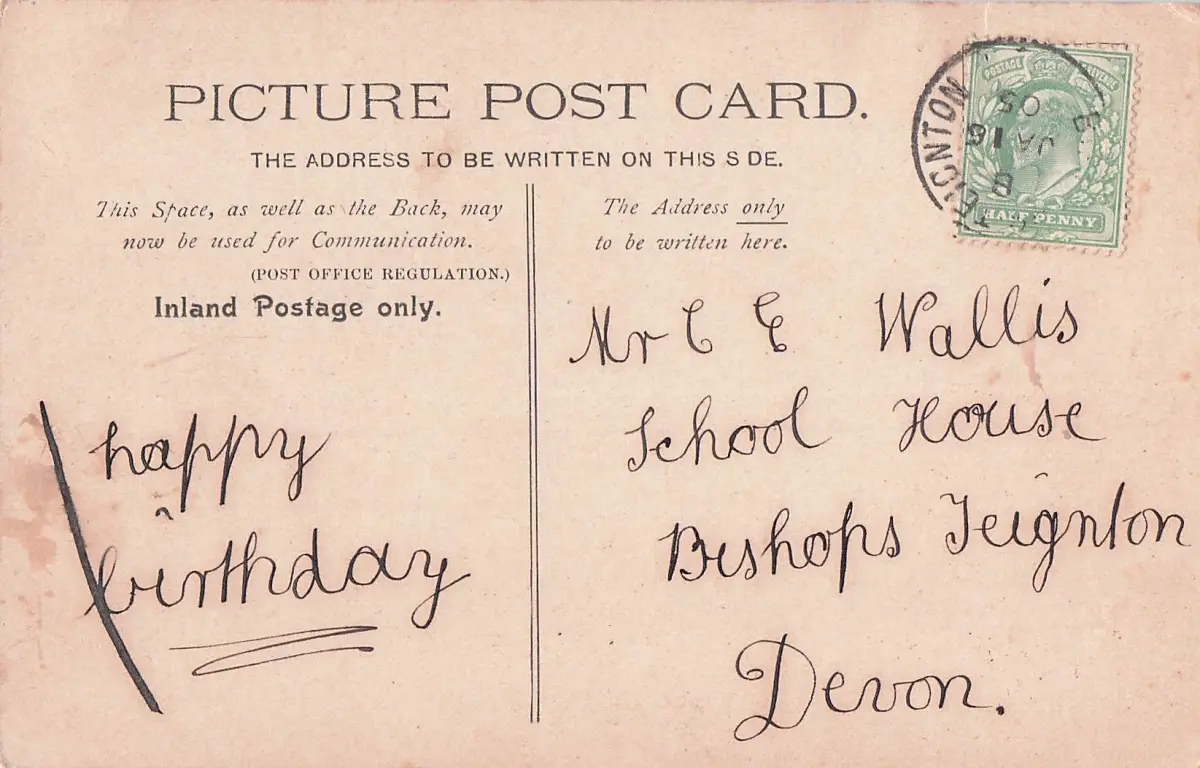 PICTURE POST CARD.
THE ADDRESS TO BE WRITTEN ON THIS S DE.
This Space, as well as the Back, may
now be used for Communication.
(POST OFFICE REGULATION.)
Inland Postage only.
happy
birthday
The Address only
to be written here.
POSTAGE REVENUE
HALF PENNY
JA 16
05
Mr C E Wallis
School House
Bishops Teignton
Devon.